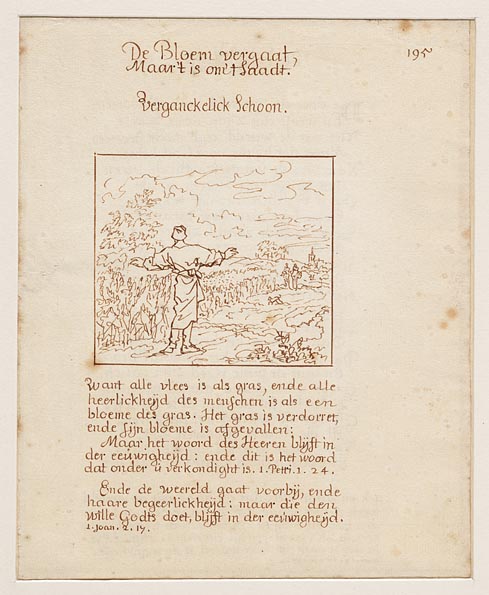 De Bloem vergaat,
Maar't is om't Saadt.
195
Verganckelick Schoon.
Want alle vlees is als gras, ende alle
heerlickheijd des menschen is als een
bloeme des gras. Het gras is verdorret,
ende sijn bloeme is afgevallen:
Maar het woord des Heeren blijft in
der eeuwigheijd: ende dit is het woord
dat onder u verkondight is. 1. Petri. 1. 24.
Ende de weereld gaat voorbij, ende
haare begeerlickheijd: maar die den
wille Godts doet, blijft in der eeuwigheijd.
1. Joan. 2. 17.